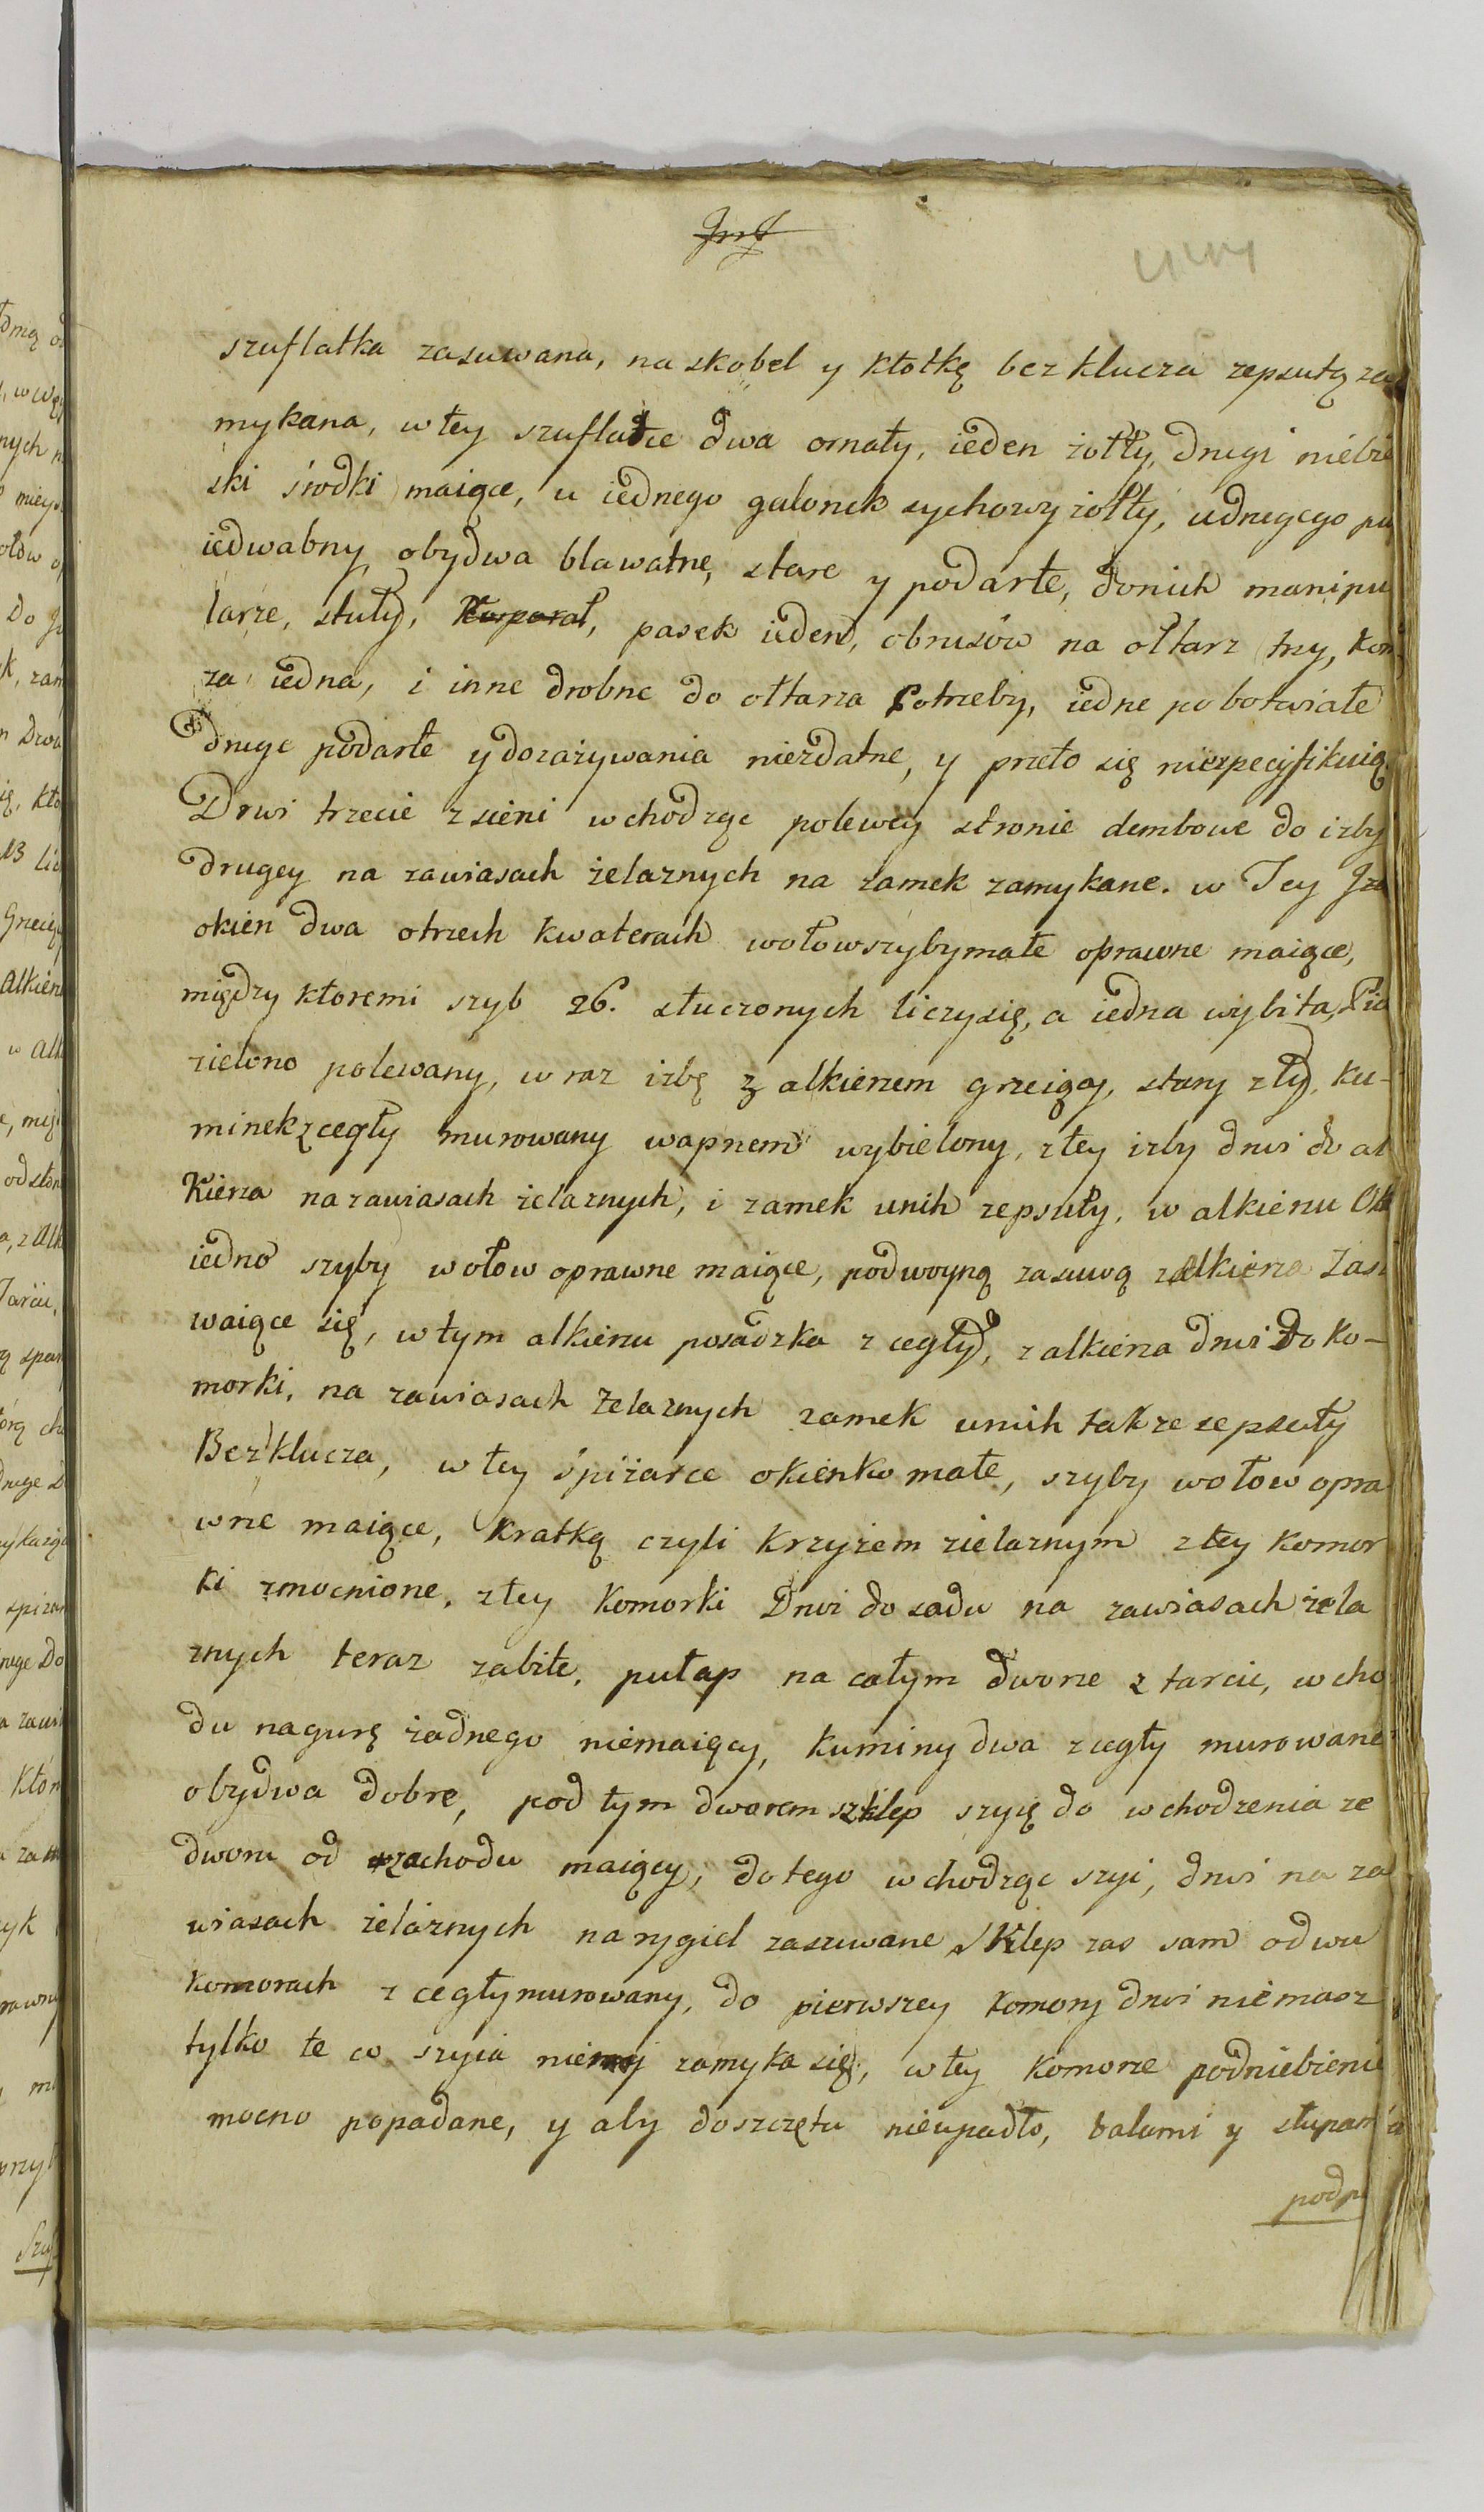 szuflatka zasuwana, na skobel y kłotkę bez klucza zepsutą za
mykana, w tey szuflatce dwa ornaty, ieden żołty, drugi niebie
ski środki maiące, u iednego galonek sychowy żołty, u drugiego
iedwabny, obydwa bławatne, stare y podarte, do nich manipu
larze, stuły, Korporał, pasek ieden, obrusów na ołtarz trzy, kom
za iedna, i inne drobne do ołtarza potrzeby, iedne pobotwiałe
drugie podarte y do zażywania niezdatne, y przeto się niespecyfikuią
Drwi trzecie z sieni wchodząc po lewey stronie dembowe do izby
drugey na zawiasach żelaznych na zamek zamykane. w Tey Iz
okien dwa o trzech kwaterach w ołow szyby małe oprawne maiące,
między ktoremi szyb 26. stuczonych liczy się, a iedna wybita, Pie
zielono polewany, w raz izbę z alkierzem grzeiący, stary zły, ku-
minek z cegły murowany wapnem wybielony, z tey izby drwi do al
kierza na zawiasach żelaznych, i zamek u nih zepsuty, w alkierzu Ok
iedno szyby w ołow oprawne maiące, podwoyną zasuwą z alkierza Zasu
waiące się, w tym alkierzu posadzka z cegły, z alkierza drwi do ko-
morki, na zawiasach żelaznych zamek u nich także zepsuty
Bez klucza, w tey śpiżarce okienko małe, szyby w ołow opra
wne maiące, kratką czyli krzyżem zielaznym z tey komor
ki zmocnione, z tey komorki Drwi do sadu na zawiasach żela
znych teraz zabite, pułap na całym dworze z tarcic, wcho
du na gurę żadnego niemaiący, kuminy dwa z cegły murowane
obydwa dobre, pod tym dworem sklep szyię do wchodzenia ze
dworu od zachodu maiący, do tego wchodząc szyi, drwi na za
wiasach żelaznych na rygiel zasuwane Sklep zas sam o dwu
komorach z cegły murowany, do pierwszey komory drwi niemasz
tylko te co szyia niemi zamyka się, w tey komorze podniebienie
mocno popadane, y aby do szczętu nieupadło, balami y słupami
podp